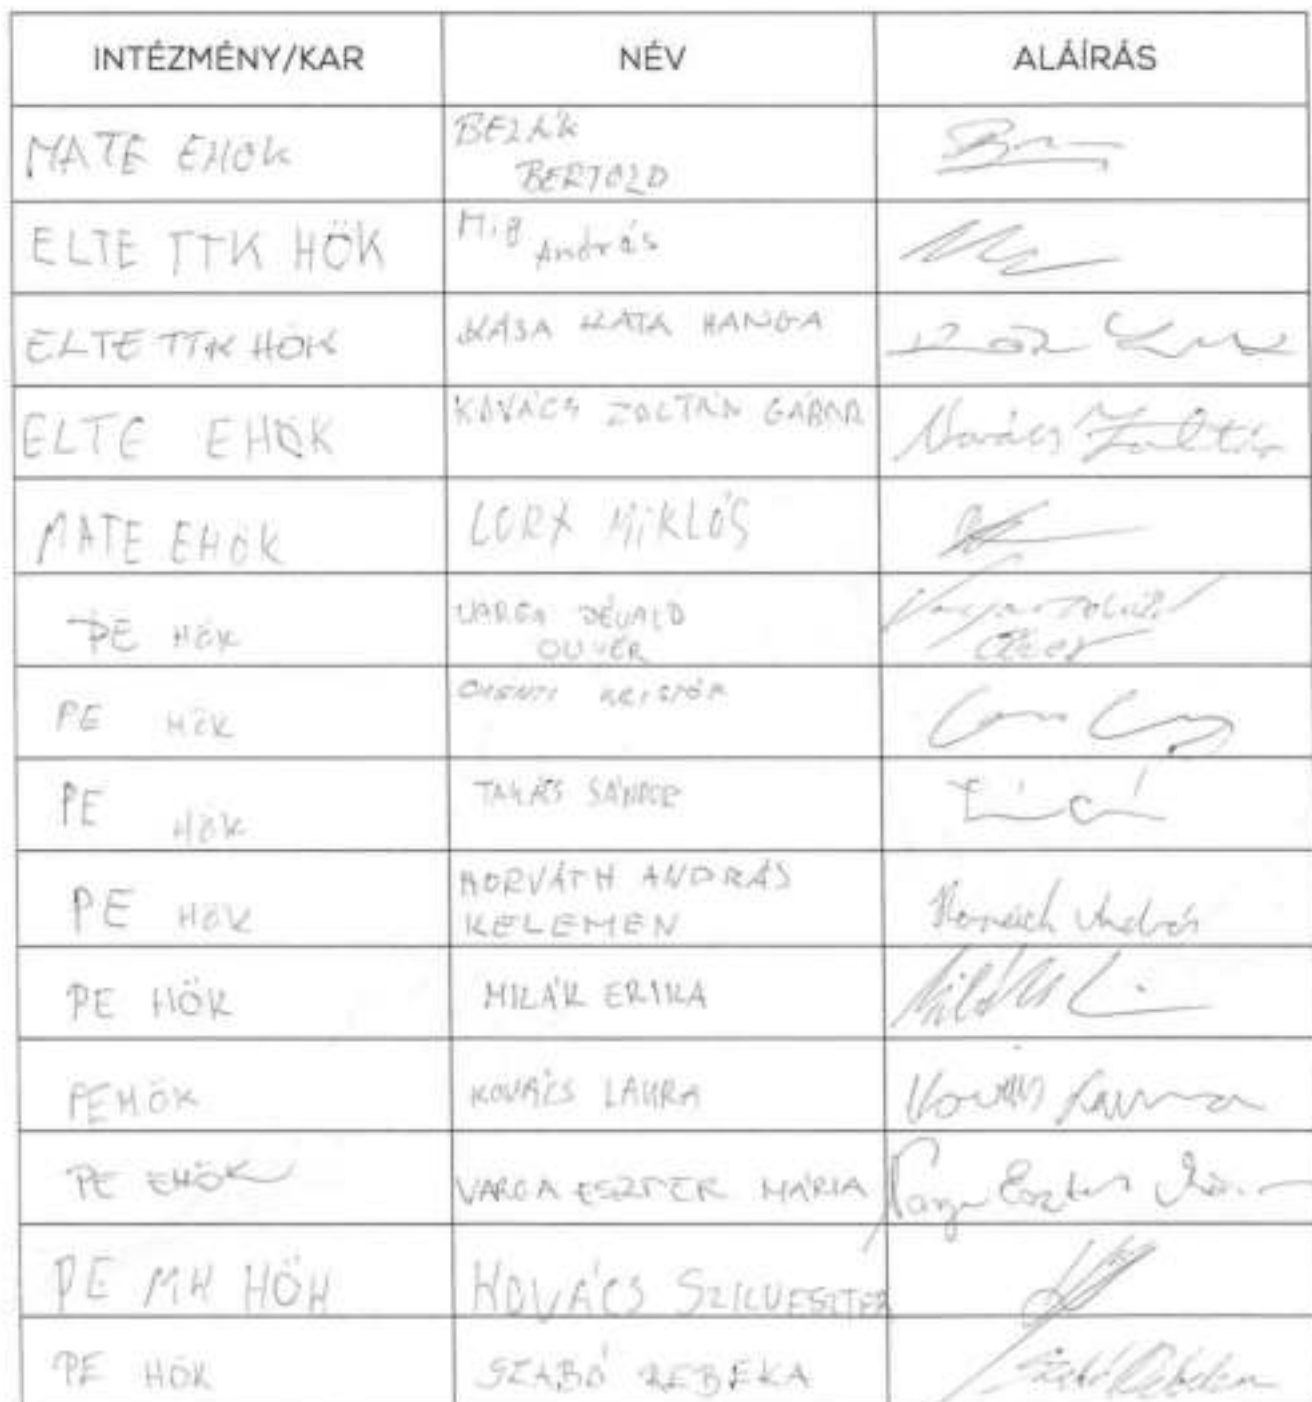 INTÉZMÉNY/KAR NÉV ALÁÍRÁS
MATE EHÖK
BERTOLD
ELTE TTK HÖK
András
ELTE TTK HÖK KÁSA KATA HANGA
ELTE EHÖK KOVÁCS ZOLTÁN GÁBOR Kovács Zoltán
MATE EHÖK MIKLÓS
PE HÖK VARGA
OLIVÉR
PE HÖK
PE HÖK TAKÁCS SÁNDOR
PE HÖK HORVÁTH ANDRÁS
KELEMEN Horváth András
PE HÖK MILÁK ERIKA
PE HÖK KOVÁCS LAURA Kovács Laura
PE EHÖK VARGA ESZTER MÁRIA Varga Eszter Mária
PE MK HÖK KOVÁCS SZILVESZTER
PE HÖK SZABÓ REBEKA Szabó Rebeka